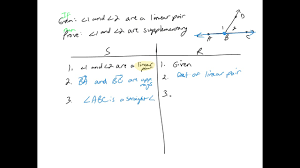 Given: ∠1 and ∠2 are a linear pair
Prove: ∠1 and ∠2 are supplementary
D
1 2
A B C
S R
1. ∠1 and ∠2 are a linear pair
1. Given
2. BA and BC are opp. rays
2. Def of linear pair
3. ∠ABC is a straight ∠
3.